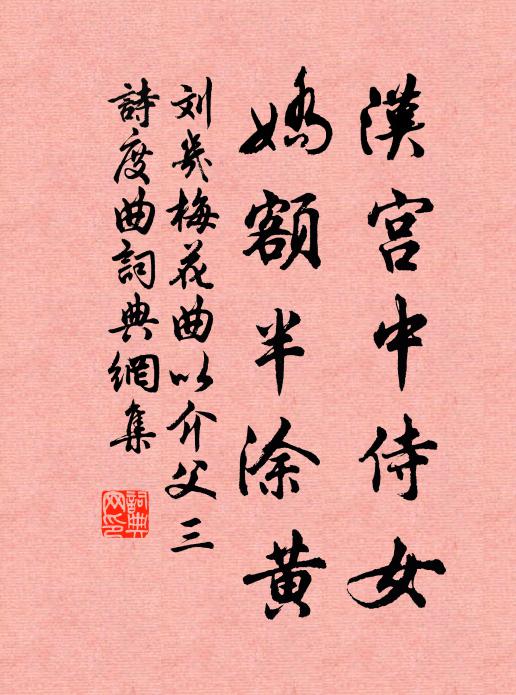 漢宮中侍女
嬌額半涂黃
刘幾梅花曲以介父三
詩度曲詞典網集
詞典网印